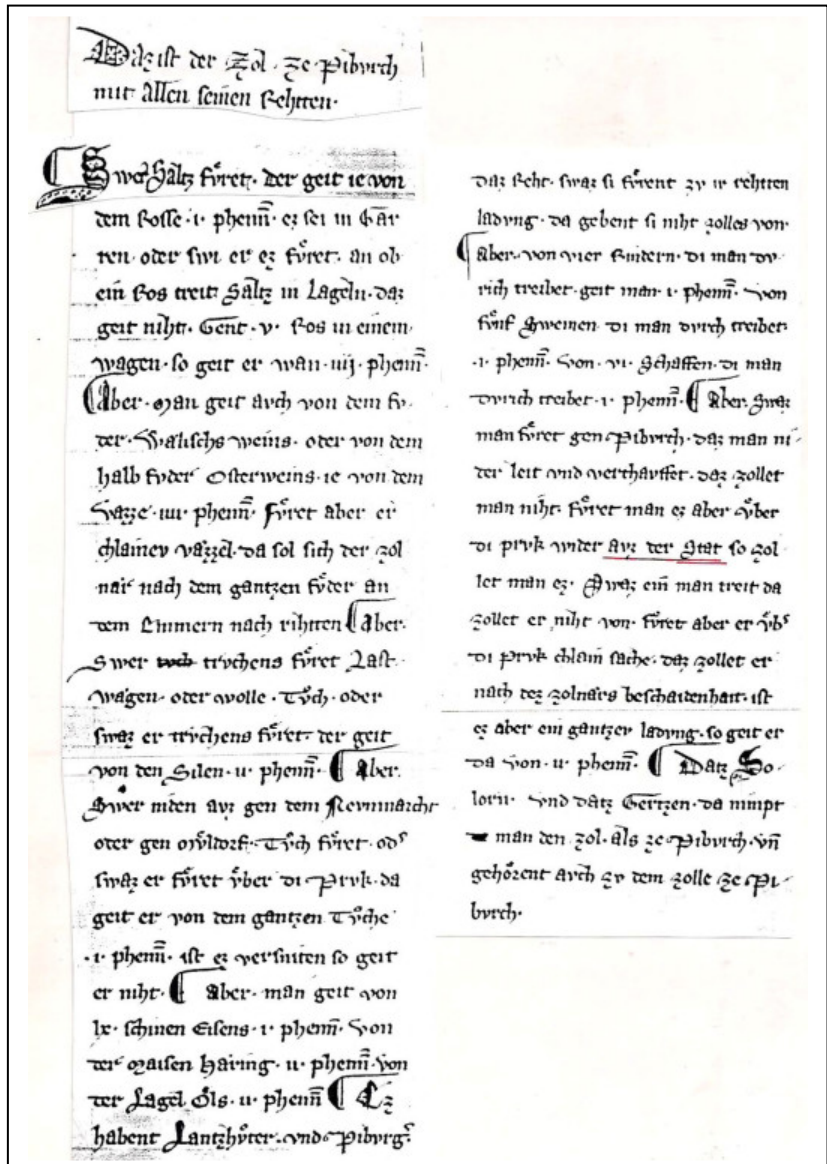 Daz ist der Zol · ze Pibvrch
mit Allen seinen Rehtten ·
Swer Saltz fvͤret · der geit ie von
dem Rosse · i · phenn̄ · ez sei in Gar
ren · oder swi er ez fvͤret · an ob
ein Ros treit Saltz in Lageln · daz
geit niht · Gent · v · Ros in einem
wagen · so geit er wan · iiij · phenn̄ ·
Aber · Man geit avch von dem fv
der · Walischs weins · oder von dem
halb fvder Osterweins · ie von dem
Vazze · iiii · phenn̄ · Fvͤret aber er
chlainev vazzel · da sol sich der zol
nar nach dem gantzen fvͦder an
dem Emmern nach rihtten Aber ·
Swer trvchens fvͤret Last
wagen · oder wolle · Tvͦch · oder
swaz er trvͤchens fvͤret · der geit
von den Silen · ii · phenn̄ · Aber ·
Swer niden avz gen dem Nevnmarcht
oder gen Mvͤldorf · Tvͦch fvͤret · od͛
swaz er fvͤret vͤber di Prvk · da
geit er von dem gantzen Tvͦche
· i · phenn̄ · ist ez versniten so geit
er niht · Aber · man geit von
lx · schinen Eisens · i · phenn̄ · Von
der Maisen Haring · ii · phenn̄ · von
der Lagel Ŏls · ii · phenn̄ Ez
habent Lantzhvͦter · vnd Pibvrg͛
daz Reht · swaz si fvͤrent zv ir rehtten
ladvng · da gebent si niht zolles von ·
Aber · von vier Rindern · di man dv
rich treibet · geit man · i · phenn̄ · Von
fvͤnf Sweinen di man dvrch treibet ·
· i · phenn̄ · Von · vi · Schaffen · di man
dvrich treibet · i · phenn̄ · Aber · Swaz
man fvͤret gen Pibvrch · daz man ni
der leit vnd verchavffet · daz zollet
man niht · Fvͤret man ez aber vͤber
di prvk wider avz der Stat so zol
let man ez · Swaz ein man treit da
zollet er niht von · fvͤret aber er vͤb͛
di Prvk chlain sache · daz zollet er
nach dez zolnars beschaidenhait · ist
ez aber ein gantzer ladvng · so geit er
da von · ii · phenn̄ · Datz So
lorn · Vnd datz Gertzen · da nimpt
man den zol · als ze Pibvrch · vn̄
gehoͤrent avch zv dem zolle ze Pi
bvrch ·